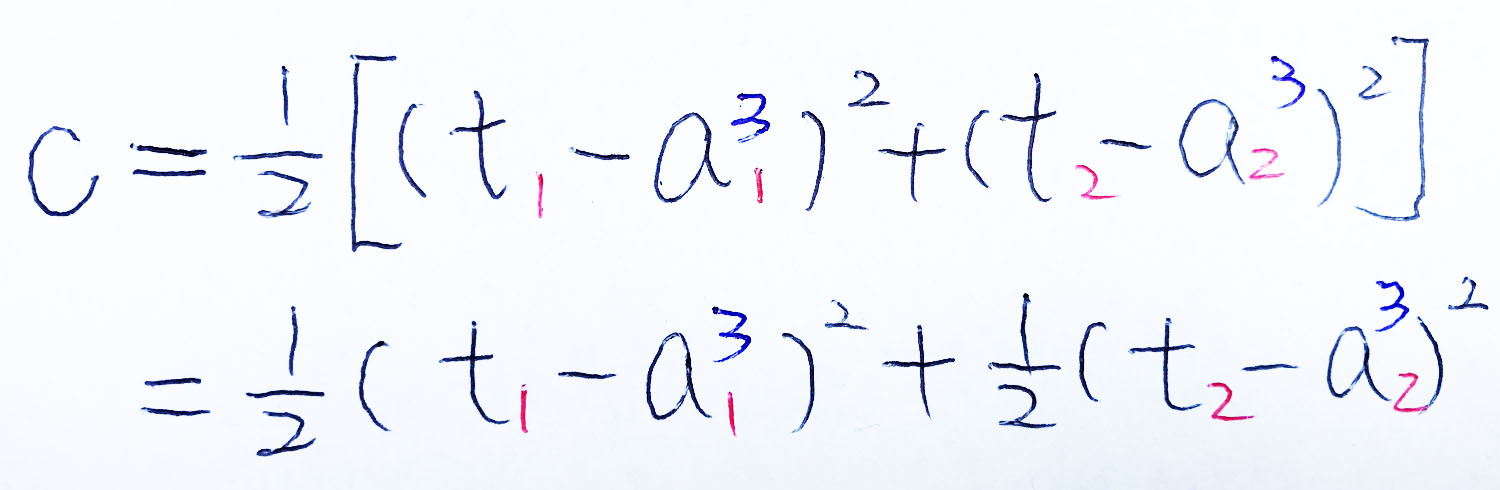 C = \frac{1}{2} [ ( t_1 - a_1^3 )^2 + ( t_2 - a_2^3 )^2 ]
= \frac{1}{2} ( t_1 - a_1^3 )^2 + \frac{1}{2} ( t_2 - a_2^3 )^2